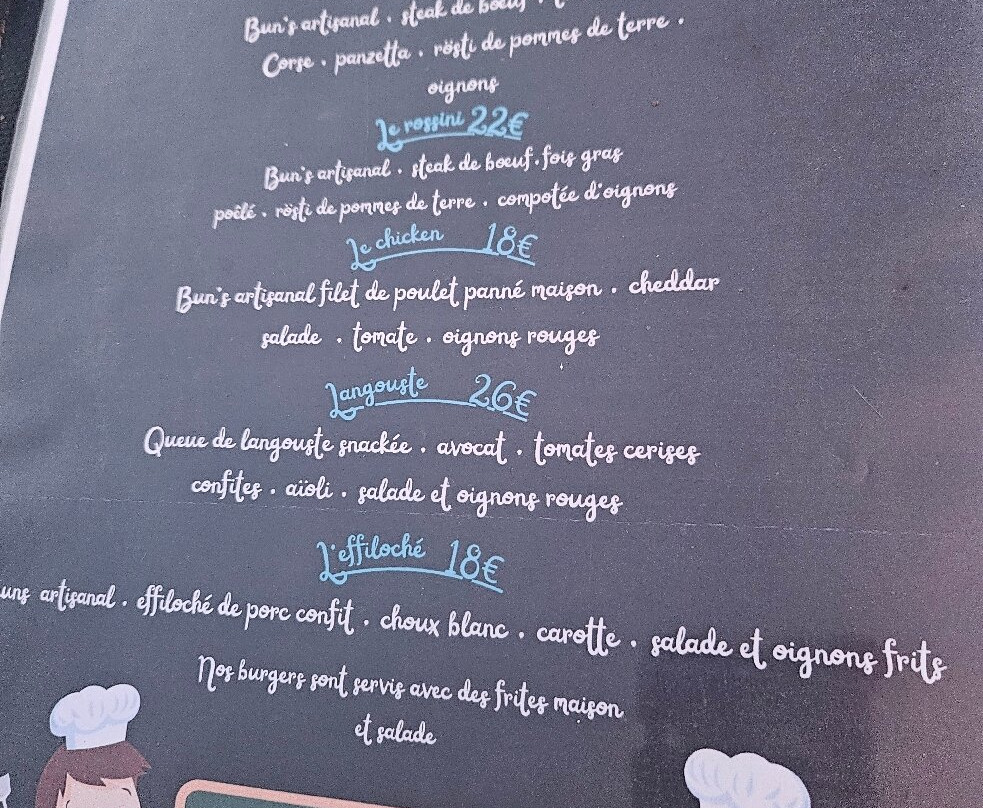 Bun's artisanal . steak de boeuf .
Corse . panzetta . rösti de pommes de terre .
oignons
Le rossini 22€
Bun's artisanal . steak de boeuf . fois gras
poêlé . rösti de pommes de terre . compotée d'oignons
Le chicken 18€
Bun's artisanal filet de poulet panné maison . cheddar
salade . tomate . oignons rouges
Langouste 26€
Queue de langouste snackée . avocat . tomates cerises
confites . aïoli . salade et oignons rouges
L'effiloché 18€
uns artisanal . effiloché de porc confit . choux blanc . carotte . salade et oignons frits
Nos burgers sont servis avec des frites maison
et salade